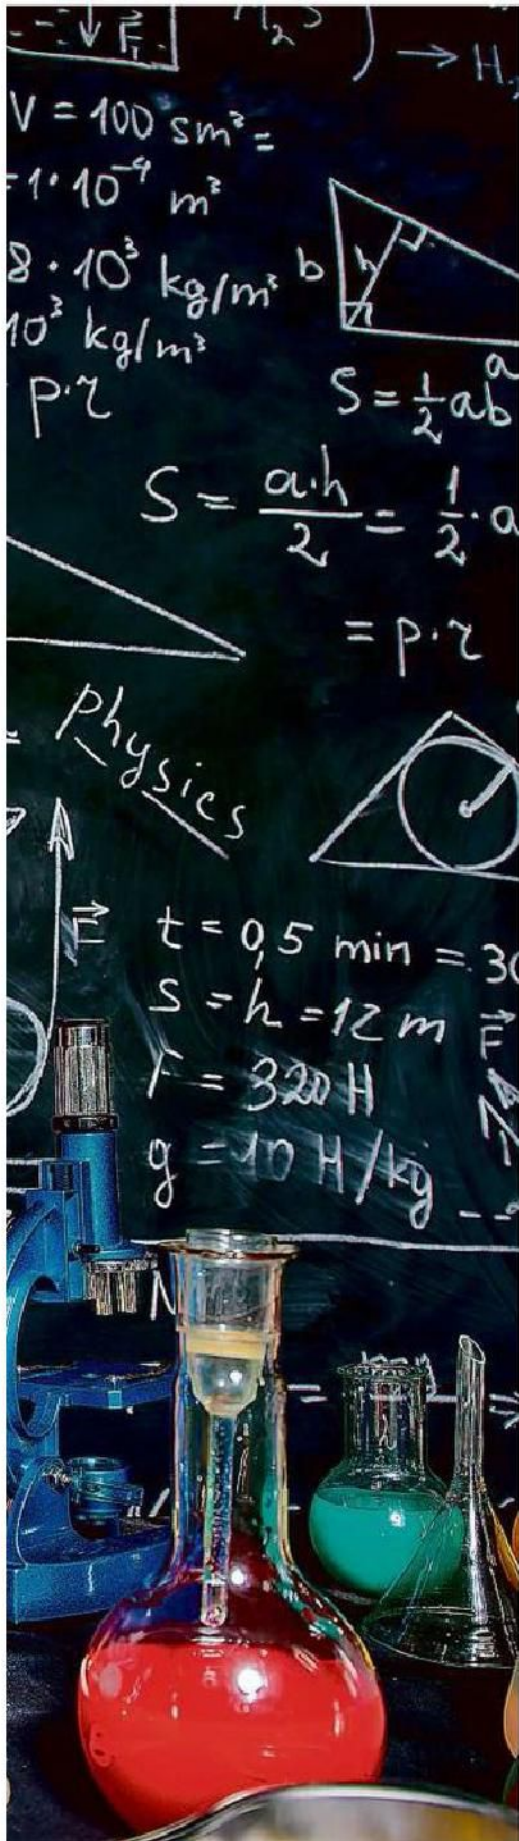 F₁
H₂S ) → H
V = 100 sm³ =
= 1·10⁻⁴ m³
8·10³ kg/m³
10³ kg/m³
p·r
b
h
a
S = ½ab
S = a·h/2 = 1/2·a
= p·r
physics
F
t = 0,5 min = 30
S = h = 12 m
F = 320 H
g = 10 H/kg
F
N